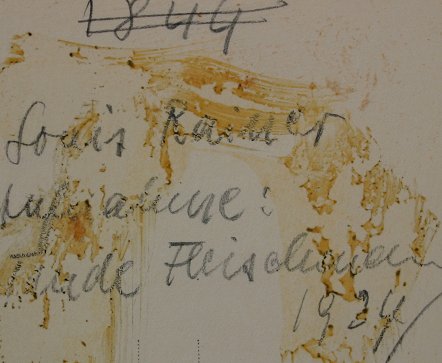 1844
Louis Rainer
Aufnahme:
Trude Fleischmann
1934